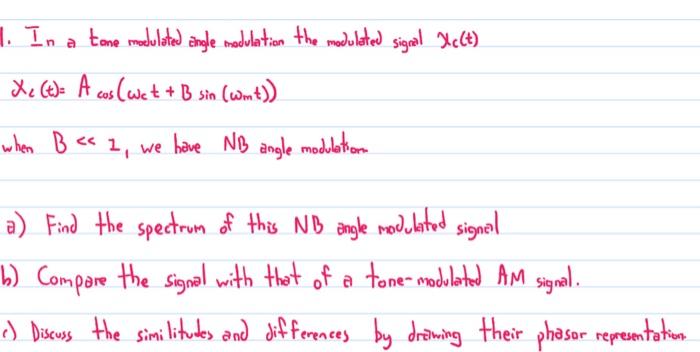 1. In a tone modulated angle modulation the modulated signal Xc(t)
Xc(t)= A cos(ωct + B sin(ωmt))
when B << 1, we have NB angle modulation
a) Find the spectrum of this NB angle modulated signal
b) Compare the signal with that of a tone-modulated AM signal.
c) Discuss the similitudes and differences by drawing their phasor representation